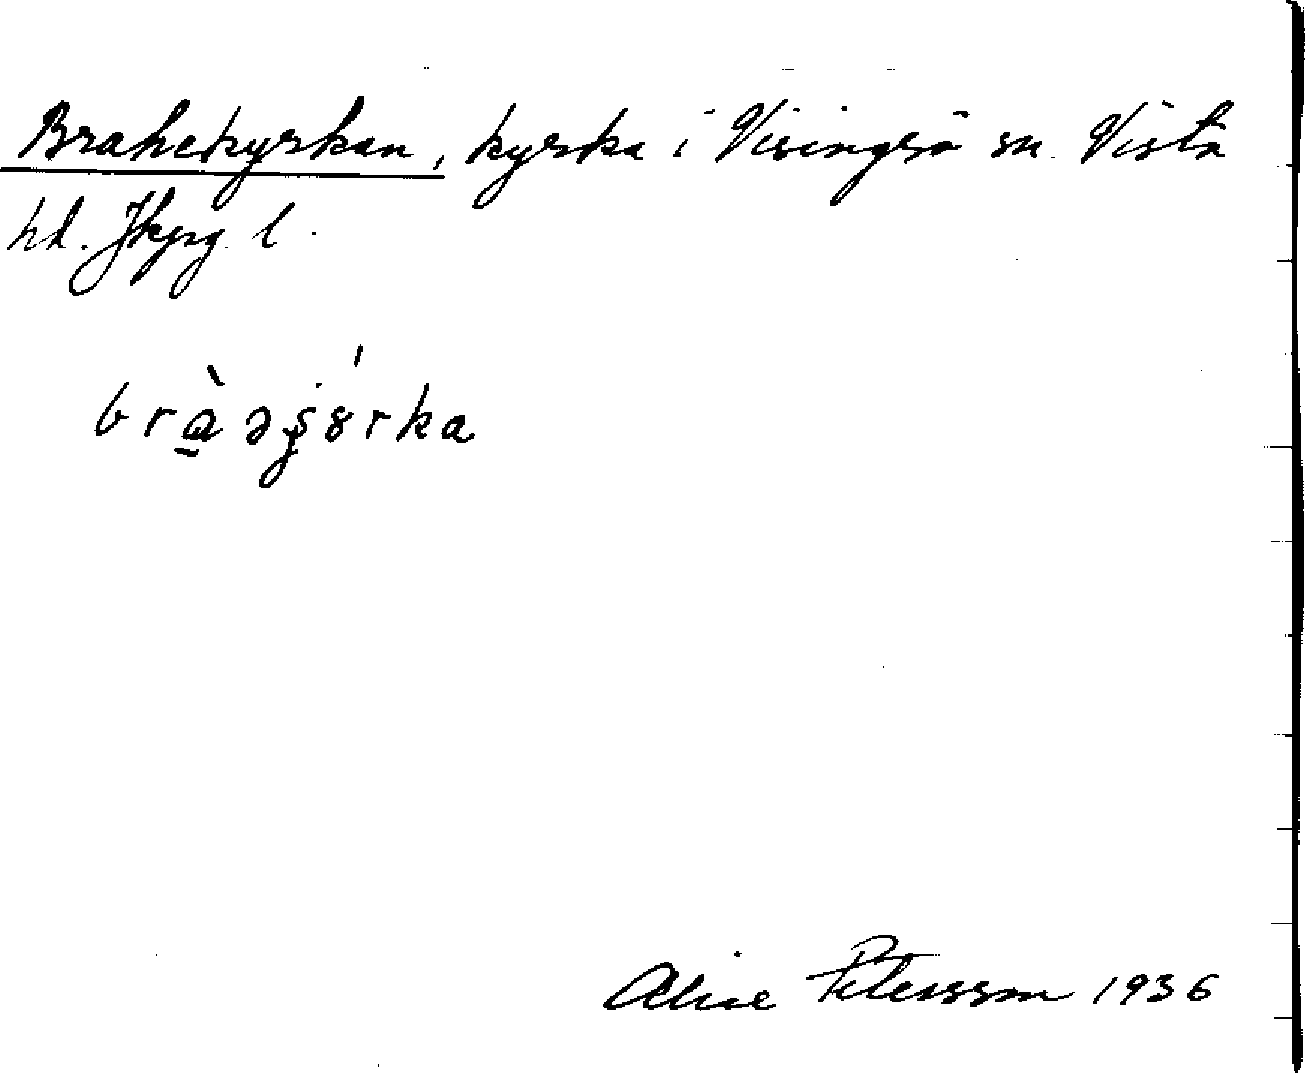 Brahekyrkan, kyrka i Visingsö sn. Vista
hd. Jkpg. l.
bràəʂɣ́rka
Alice Petersson 1936